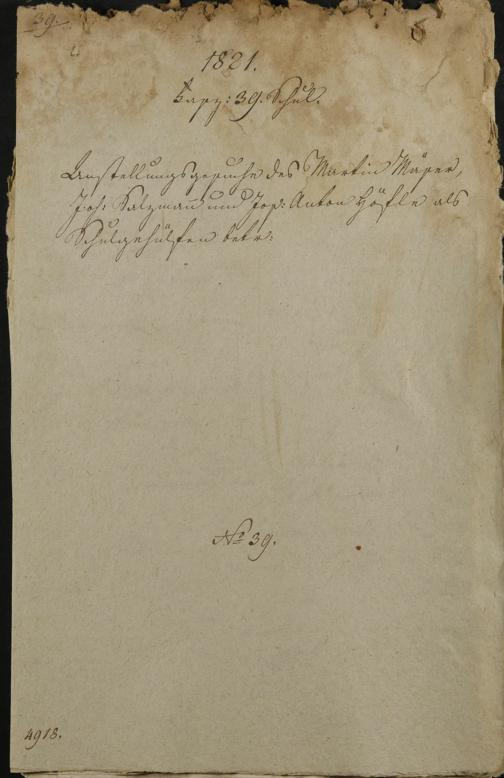 39.
1821.
Fasz: 39. Schul.
Anstellungsgesuche des Martin Mäser,
Joh: Salzman und Jos: Anton Höfle als
Schulgehülfen betr:
No 39.
4918.